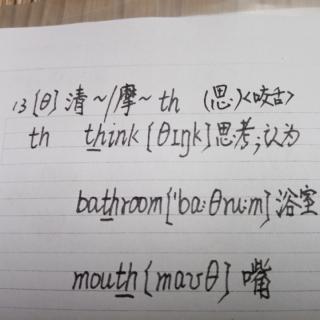 13 [θ] 清~/摩~ th (思)<咬舌>
th think [θɪŋk] 思考;认为
bathroom ['ba:θru:m] 浴室
mouth [maʊθ] 嘴